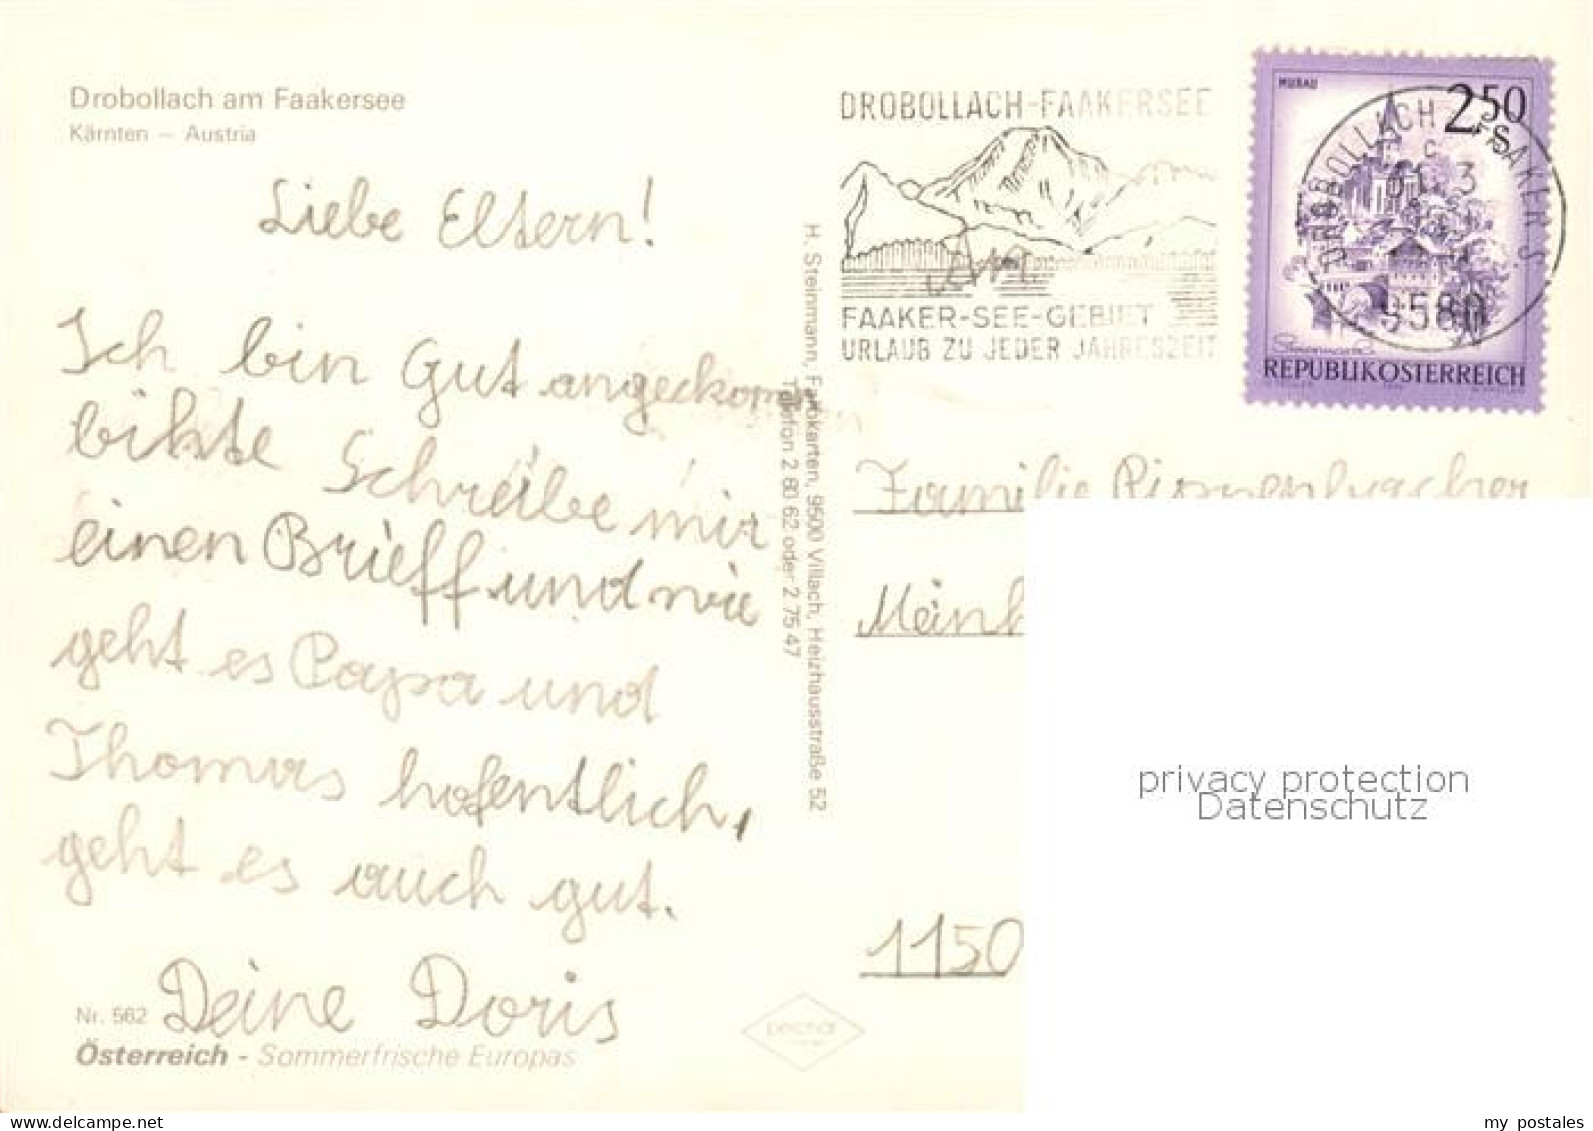 Drobollach am Faakersee
Kärnten — Austria
Liebe Eltern!
Ich bin Gut angeckommen
bihte Schreibe mir
einen Brieff und wie
geht es Papa und
Thomas hofentlich,
geht es auch gut.
Deine Doris
Nr. 562
Österreich - Sommerfrische Europas
H. Steinmann, Farbkarten, 9500 Villach, Heizhausstraße 52
Telefon 2 60 62 oder 2 75 47
pechar
DROBOLLACH-FAAKERSEE
FAAKER-SEE-GEBIET
URLAUB ZU JEDER JAHRESZEIT
MURAU
2.50
S
REPUBLIK ÖSTERREICH
DROBOLLACH FAAKER S.
9580
Familie
1150
privacy protection
Datenschutz
www.delcampe.net
my postales